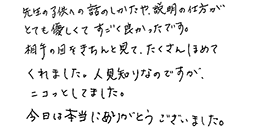 先生の子供への話のしかたや、説明の仕方が
とても優しくて すごく良かったです。
相手の目をきちんと見て、たくさんほめて
くれました。人見知りなのですが、
ニコッとしてました。
今日は本当にありがとうございました。